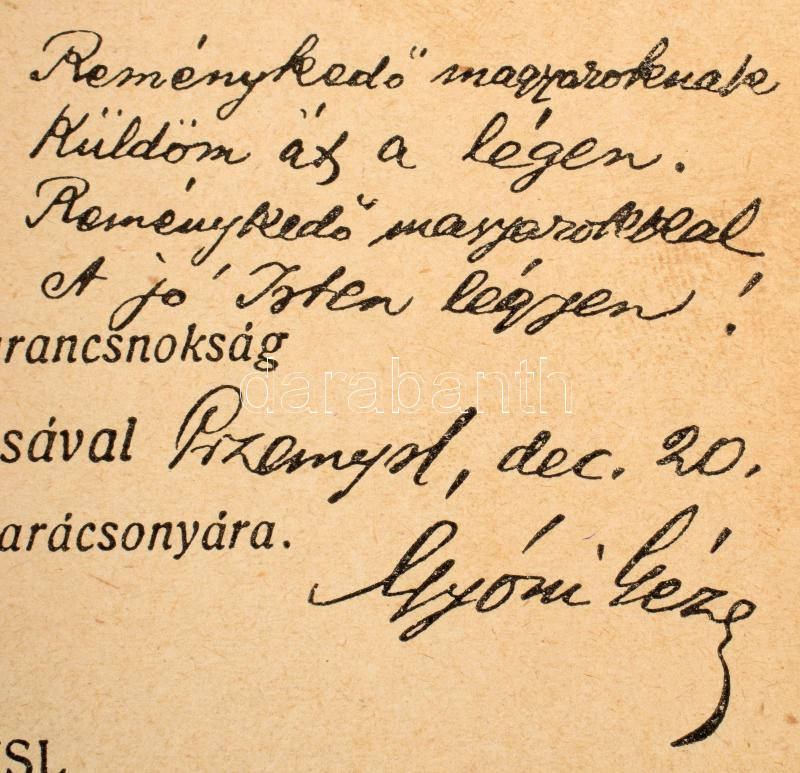 Reménykedő magyaroknak
Küldöm át a légen.
Reménykedő magyarokkal
A jó Isten légyen!
rancsnokság
darabanth
sával Przemysl, dec. 20.
arácsonyára.
Gyóni Géza
YSL